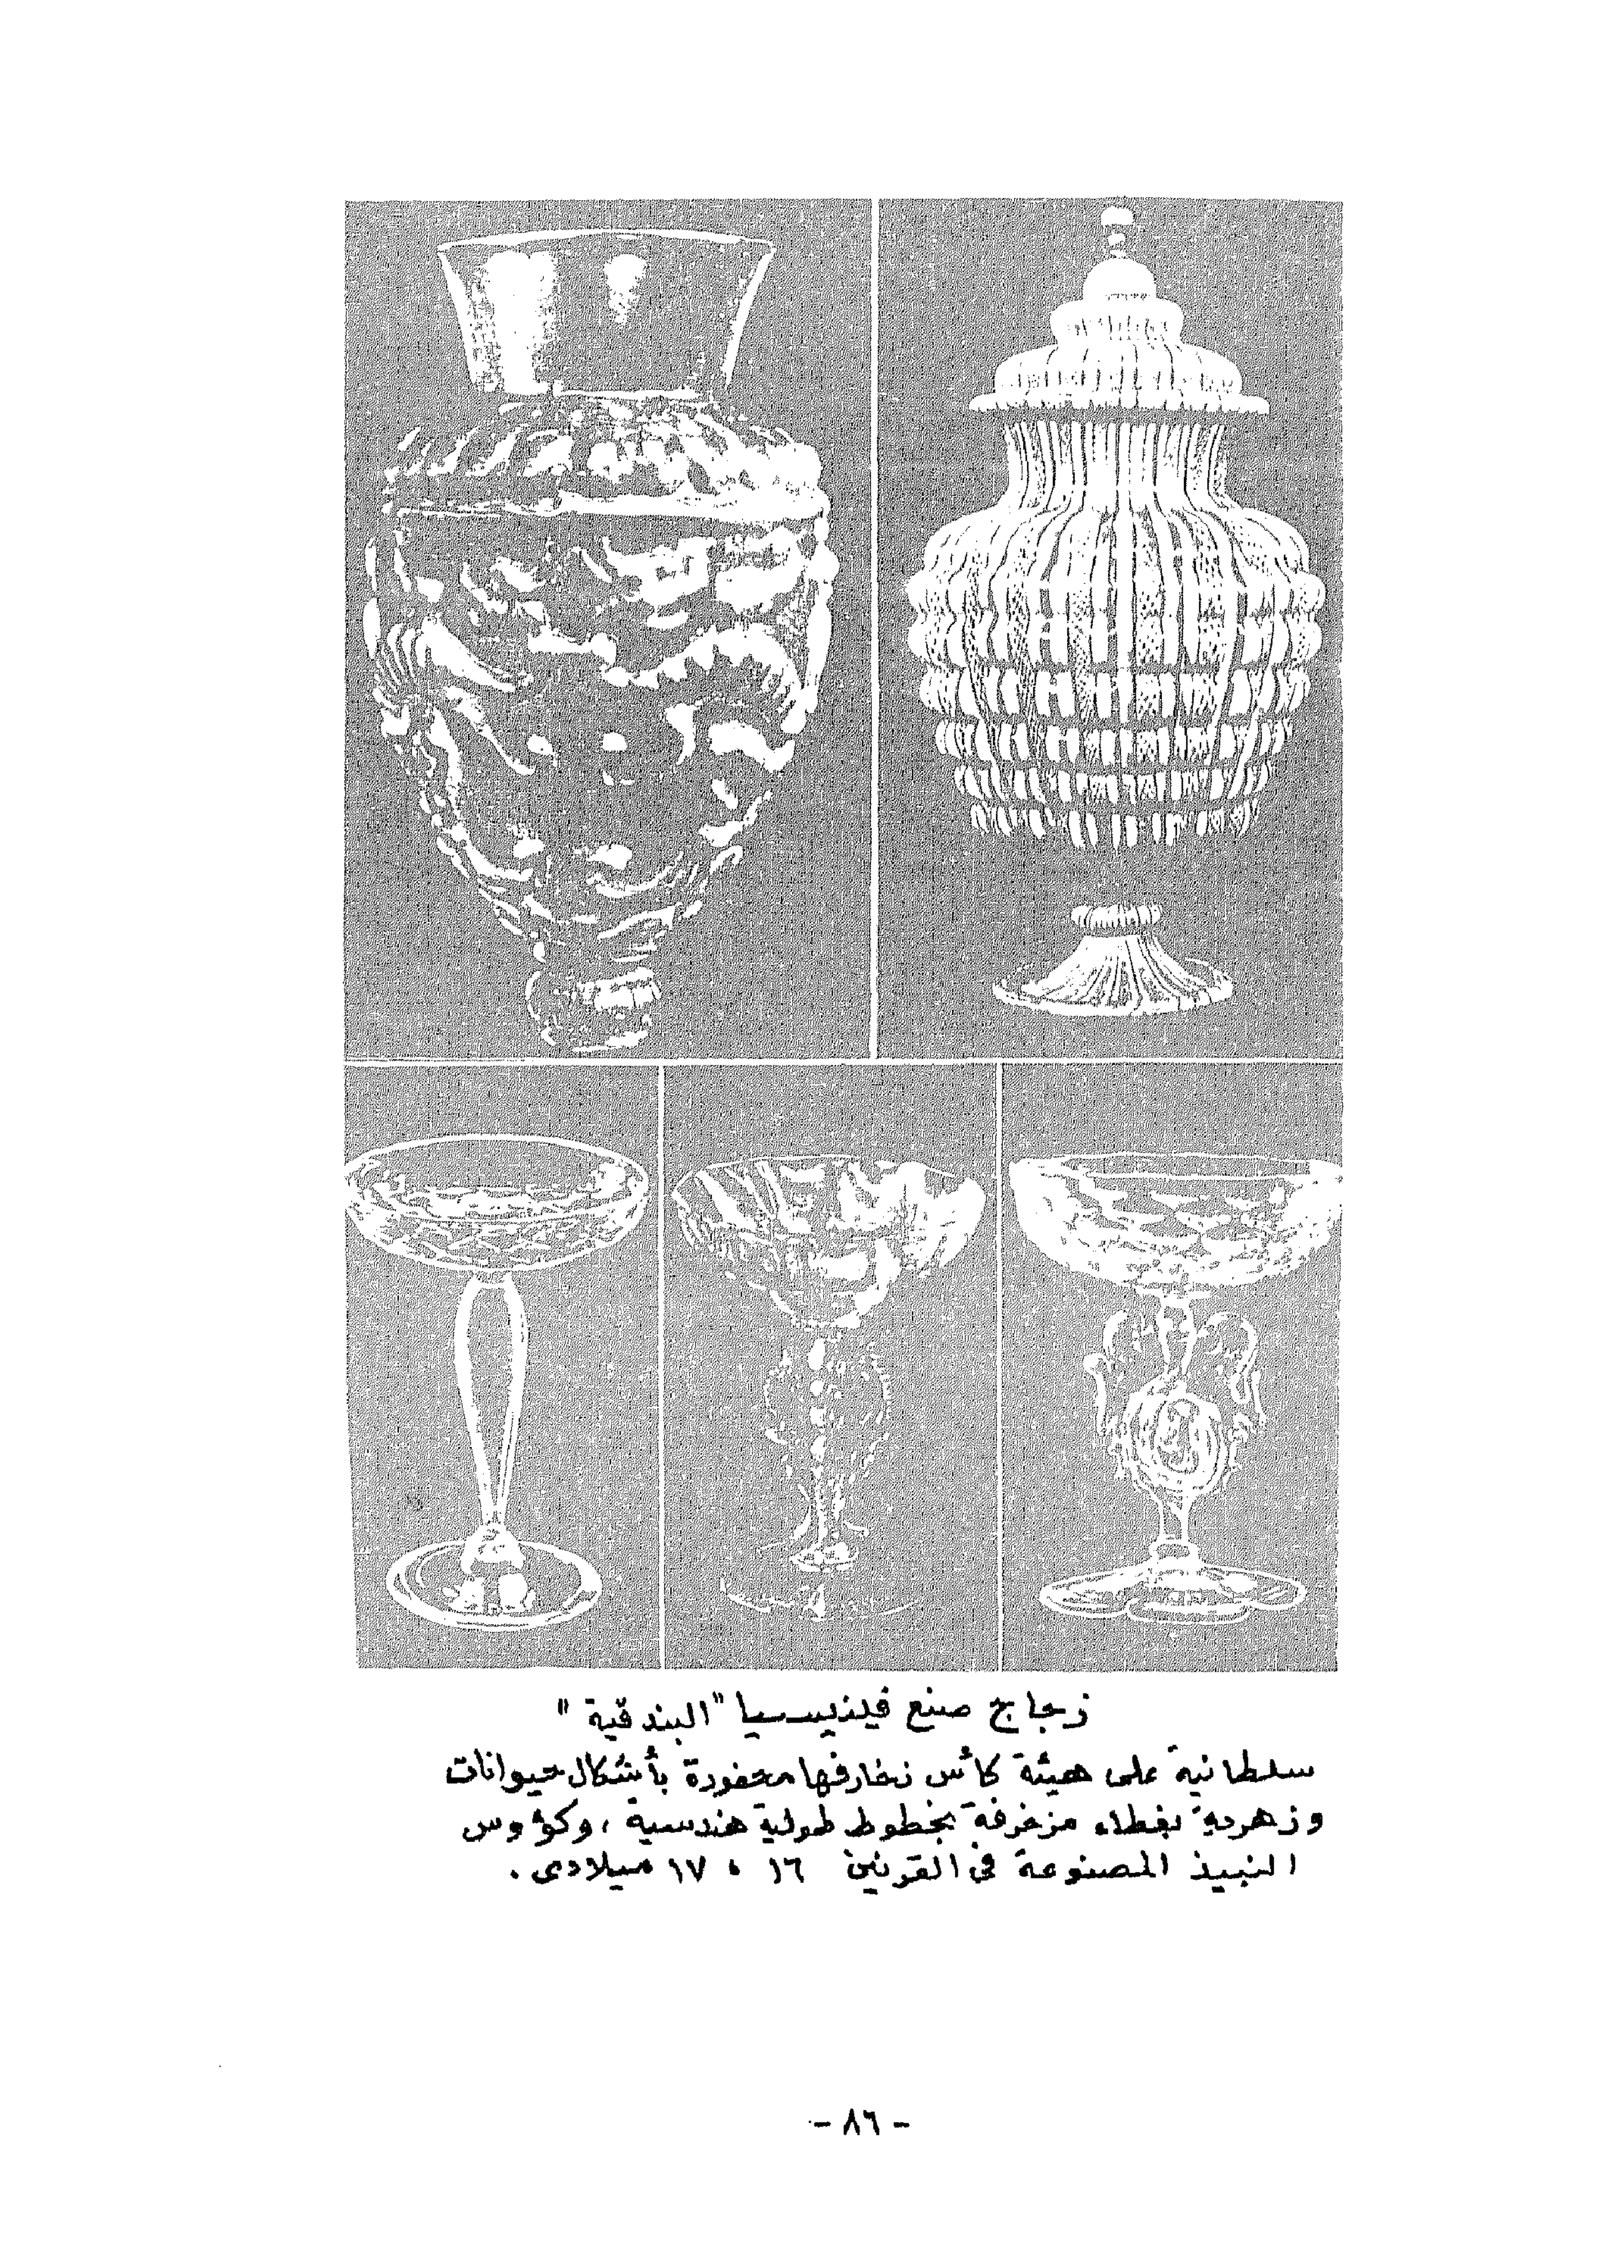 زجاج صنع فينيسيا "البندقية"
سلطانية على هيئة كأس زخارفها محفورة بأشكال حيوانات
وزهرية بغطاء مزخرفة بخطوط طولية هندسية ، وكؤوس
النبيذ المصنوعة فى القرنين ١٦ ، ١٧ ميلادى .
- ٨٦ -